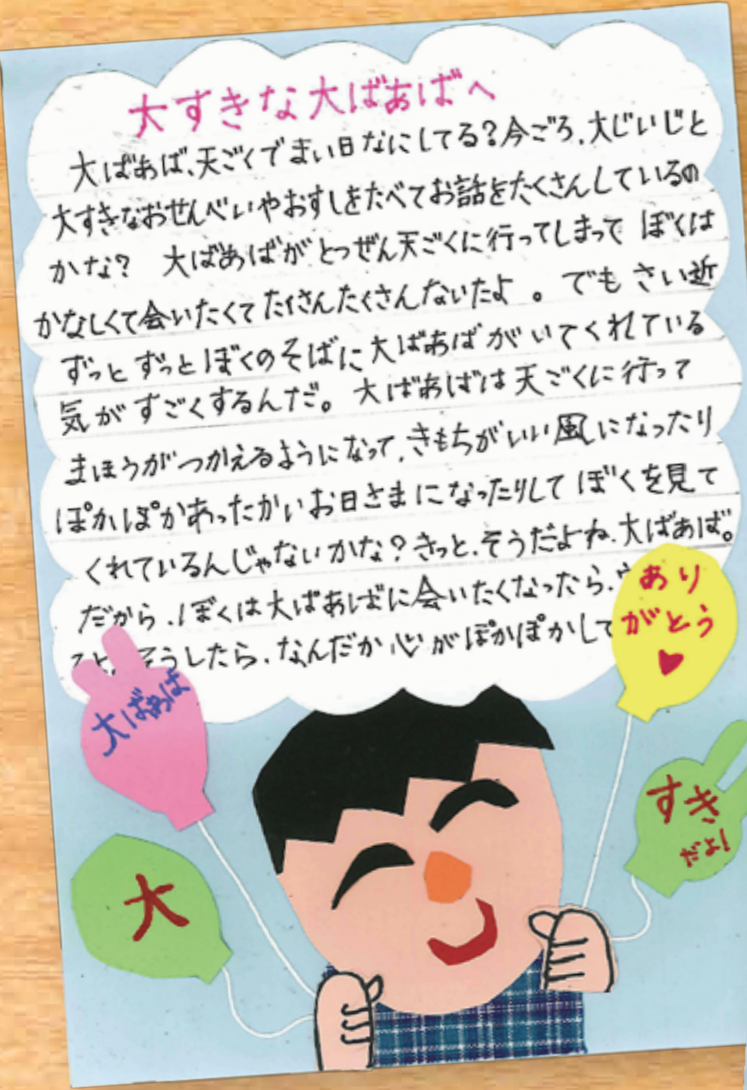 大すきな大ばあばへ
大ばあば、天ごくでまい日なにしてる?今ごろ、大じいじと
大すきなおせんべいやおすしをたべてお話をたくさんしているの
かな? 大ばあばがとつぜん天ごくに行ってしまって ぼくは
かなしくて会いたくてたくさんたくさんないたよ。でも さい近
ずっとずっとぼくのそばに大ばあばがいてくれている
気がすごくするんだ。大ばあばは天ごくに行って
まほうがつかえるようになって、きもちがいい風になったり
ぽかぽかあったかいお日さまになったりしてぼくを見て
くれているんじゃないかな?きっと、そうだよね、大ばあば。
だから、ぼくは大ばあばに会いたくなったら、
そうしたら、なんだか心がぽかぽかして
あり
がとう
大ばあば
すき
だよ!
大